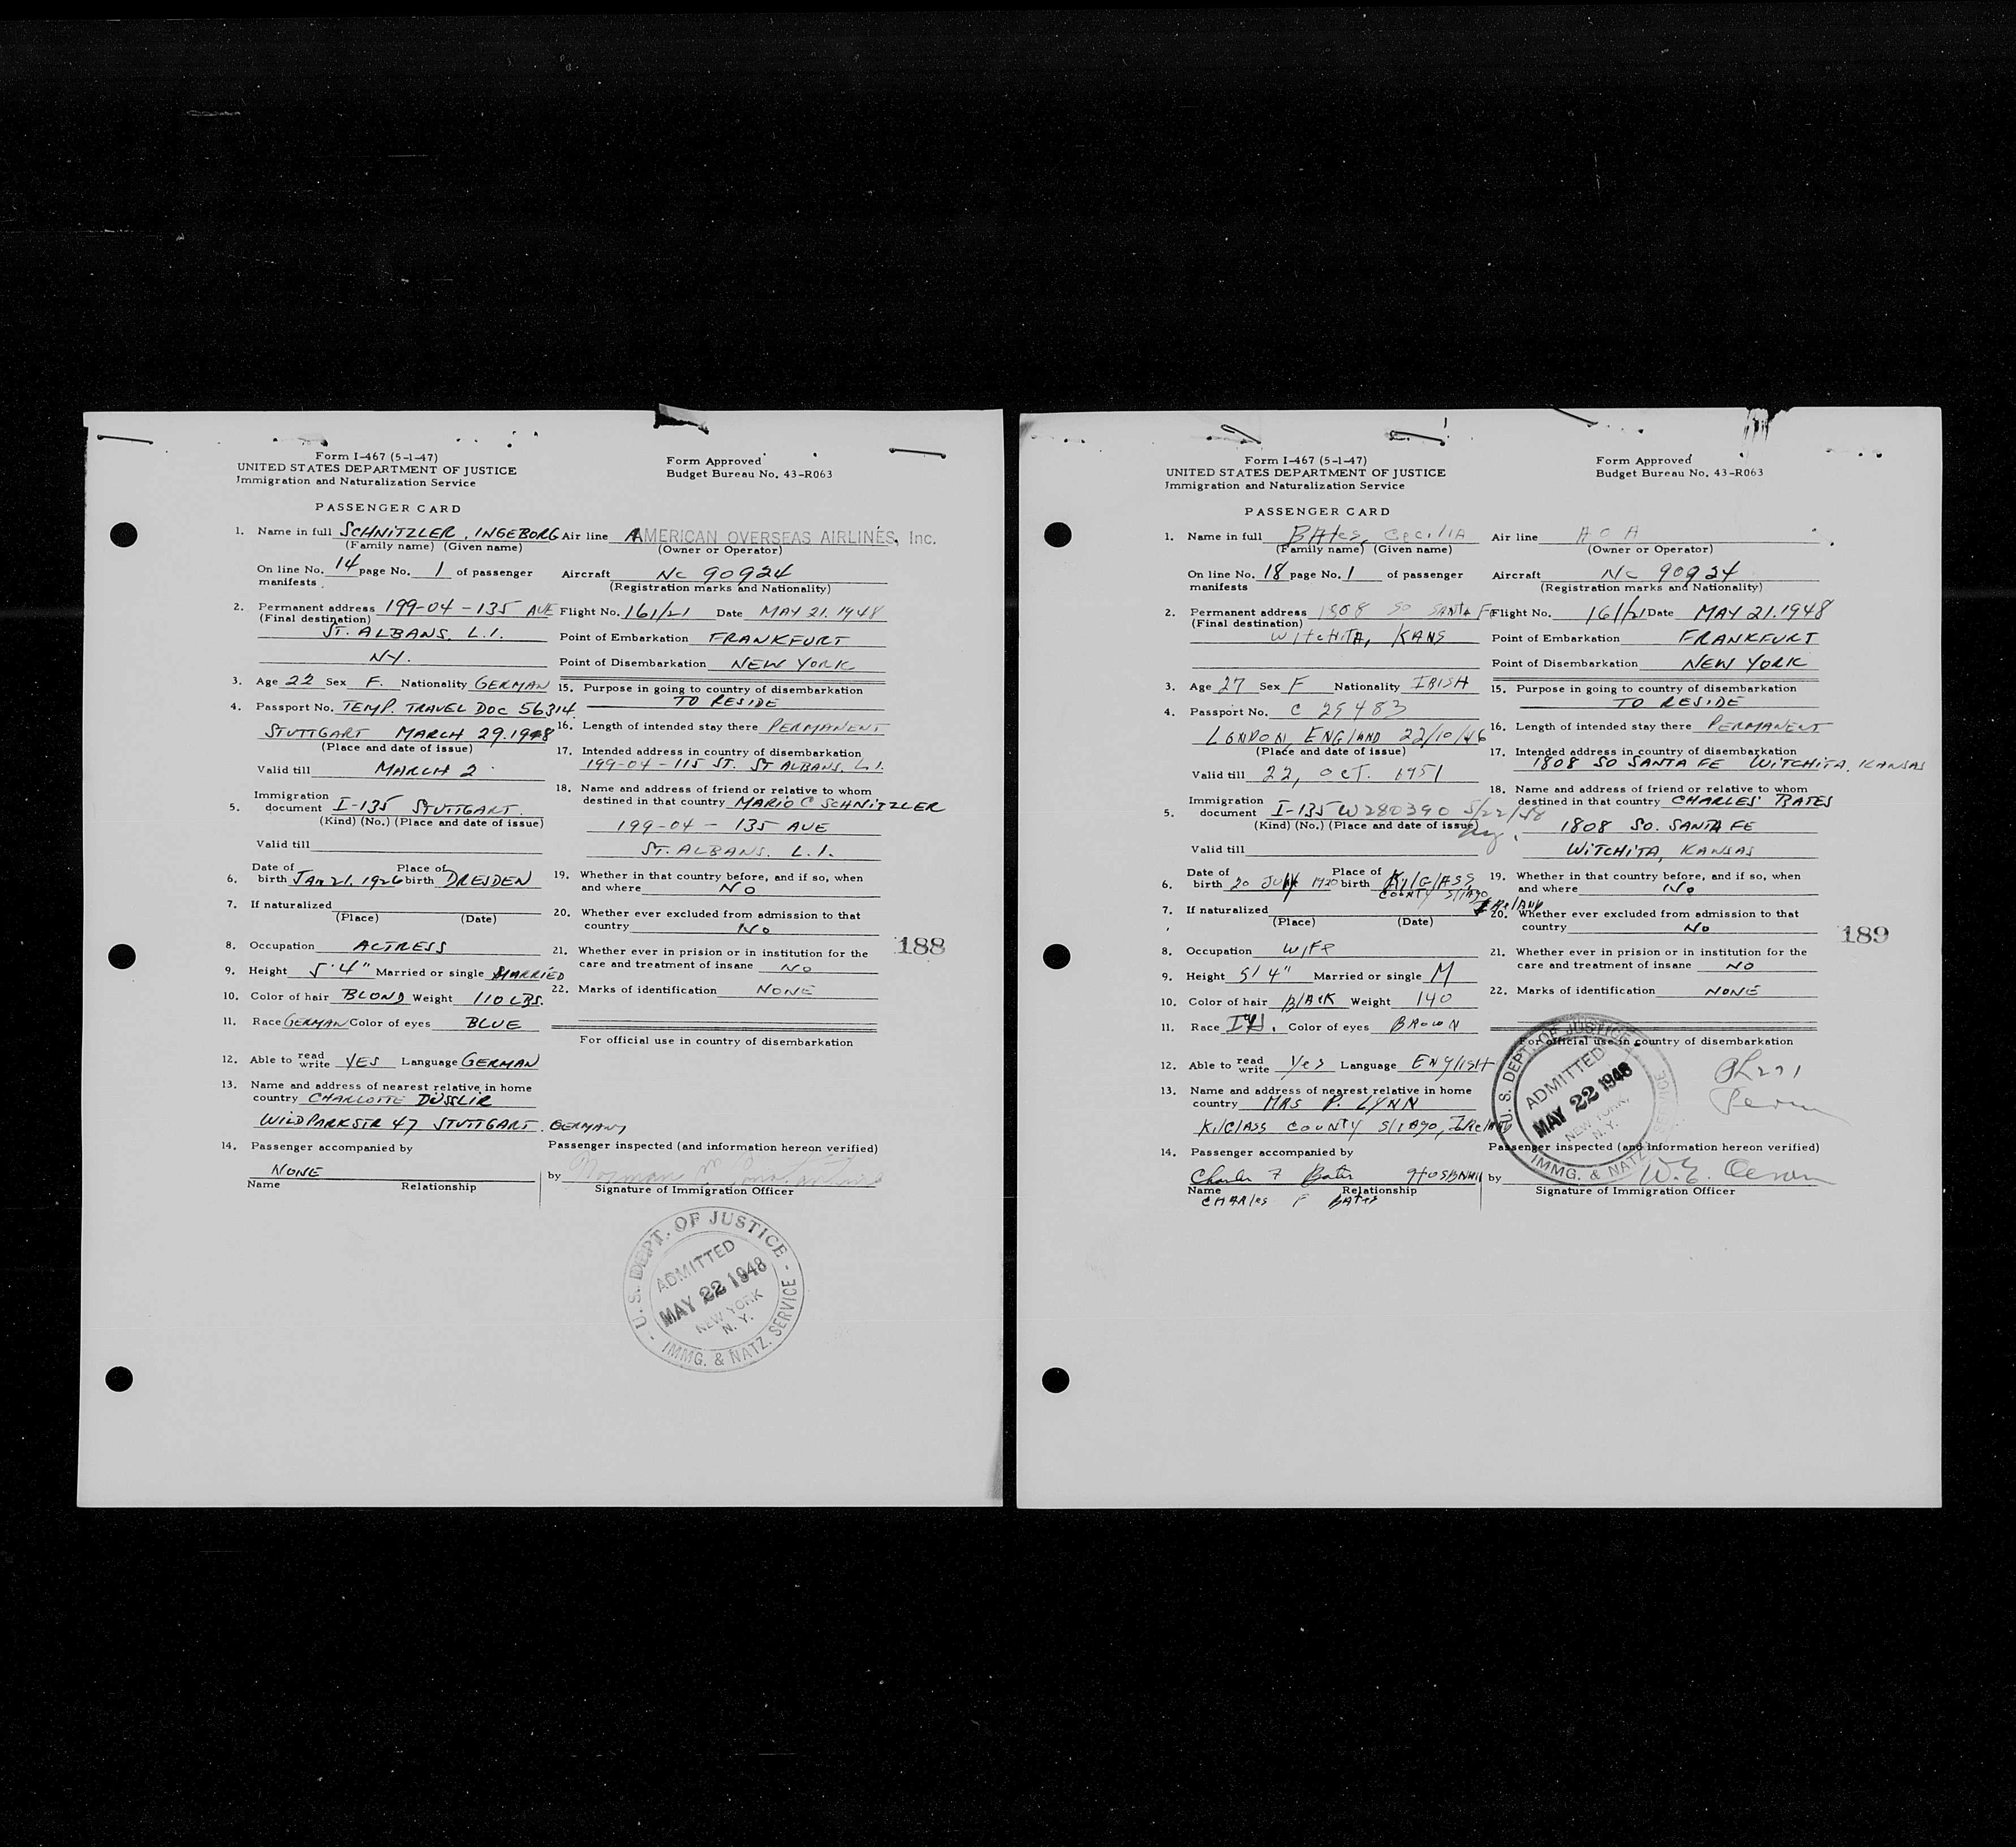 Form I-467 (5-1-47)
UNITED STATES DEPARTMENT OF JUSTICE
Immigration and Naturalization Service
Form Approved
Budget Bureau No. 43-R063
PASSENGER CARD
1. Name in full SCHNITZLER, INGEBORG
(Family name) (Given name)
On line No. 14 page No. 1 of passenger
manifests
2. Permanent address 199-04-135 AVE
(Final destination)
ST. ALBANS. L.I.
NY.
3. Age 22 Sex F. Nationality GERMAN
4. Passport No. TEMP. TRAVEL DOC 56314
STUTTGART MARCH 29.1948
(Place and date of issue)
Valid till MARCH 2
5. Immigration
document I-135 STUTTGART.
(Kind) (No.) (Place and date of issue)
Valid till
6. Date of birth JAN 21. 1926 Place of birth DRESDEN
7. If naturalized
(Place) (Date)
8. Occupation ACTRESS
9. Height 5'4" Married or single MARRIED
10. Color of hair BLOND Weight 110 LBS.
11. Race GERMAN Color of eyes BLUE
12. Able to read write YES Language GERMAN
13. Name and address of nearest relative in home
country CHARLOTTE DÜSSLIR
WILDPARKSTR 47 STUTTGART. GERMANY
14. Passenger accompanied by
NONE
Name Relationship
Air line AMERICAN OVERSEAS AIRLINES, Inc.
(Owner or Operator)
Aircraft NC 90924
(Registration marks and Nationality)
Flight No. 161/21 Date MAY 21.1948
Point of Embarkation FRANKFURT
Point of Disembarkation NEW YORK
15. Purpose in going to country of disembarkation
TO RESIDE
16. Length of intended stay there PERMANENT
17. Intended address in country of disembarkation
199-04-115 ST. ST ALBANS. L.I.
18. Name and address of friend or relative to whom
destined in that country MARIO C SCHNITZLER
199-04-135 AUE
ST. ALBANS. L.I.
19. Whether in that country before, and if so, when
and where NO
20. Whether ever excluded from admission to that
country NO
21. Whether ever in prision or in institution for the
care and treatment of insane NO
22. Marks of identification NONE
For official use in country of disembarkation
188
Passenger inspected (and information hereon verified)
by Norman
Signature of Immigration Officer
U. S. DEPT. OF JUSTICE
ADMITTED
MAY 22 1948
NEW YORK
N. Y.
IMMG. & NATZ. SERVICE
Form I-467 (5-1-47)
UNITED STATES DEPARTMENT OF JUSTICE
Immigration and Naturalization Service
Form Approved
Budget Bureau No. 43-R063
PASSENGER CARD
1. Name in full BAtes, CeciliA
(Family name) (Given name)
On line No. 18 page No. 1 of passenger
manifests
2. Permanent address 1808 SO SANTA Fe
(Final destination)
WItcHITA, KANS
3. Age 27 Sex F Nationality IRISH
4. Passport No. C 29483
LONDON, ENGlAND 22/10/46
(Place and date of issue)
Valid till 22, OCT. 1951
5. Immigration
document I-135 W280390 5/22/58
(Kind) (No.) (Place and date of issue)
Valid till
6. Date of birth 20 JUly 1920 Place of birth KilGlASS
COUNTY SlIAgo, IRelAND
7. If naturalized
(Place) (Date)
8. Occupation WIFe
9. Height 5'4" Married or single M
10. Color of hair BlAcK Weight 140
11. Race Color of eyes BROWN
12. Able to read write Yes Language ENglISH
13. Name and address of nearest relative in home
country MRS P. LYNN
KilClASS COUNTY SlIAgo,
14. Passenger accompanied by
Charles F Bates HUSBAND
Name Relationship
CHARles F BATes
Air line AOA
(Owner or Operator)
Aircraft NC 90924
(Registration marks and Nationality)
Flight No. 161/21 Date MAY 21.1948
Point of Embarkation FRANKFURT
Point of Disembarkation NEW YORK
15. Purpose in going to country of disembarkation
TO RESIDE
16. Length of intended stay there PERMANENT
17. Intended address in country of disembarkation
1808 SO SANTA FE WITCHITA, KANSAS
18. Name and address of friend or relative to whom
destined in that country CHARLES BATES
1808 SO. SANTA FE
WITCHITA, KANSAS
19. Whether in that country before, and if so, when
and where NO
20. Whether ever excluded from admission to that
country NO
21. Whether ever in prision or in institution for the
care and treatment of insane NO
22. Marks of identification NONE
For official use in country of disembarkation
189
U. S. DEPT. OF JUSTICE
ADMITTED
MAY 22 1948
NEW YORK,
N. Y.
IMMG. & NATZ. SERVICE
Passenger inspected (and information hereon verified)
by W. E.
Signature of Immigration Officer